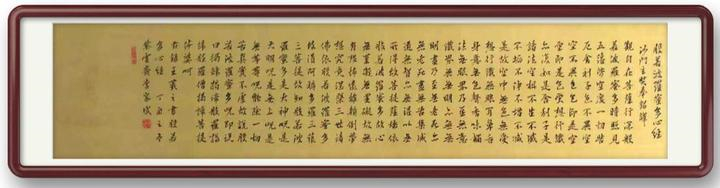 般若波羅蜜多心經
沙門玄奘奉詔譯
觀自在菩薩行深般
若波羅蜜多時照見
五蘊皆空度一切苦
厄舍利子色不異空
空不異色色即是空
空即是色受想行識
亦復如是舍利子是
諸法空相不生不滅
不垢不淨不增不減
是故空中無色無受
想行識無眼耳鼻舌
身意無色聲香味觸
法無眼界乃至無意
識界無無明亦無無
明盡乃至無老死亦
無老死盡無苦集滅
道無智亦無得以無
所得故菩提薩埵依
般若波羅蜜多故心
無罣礙無罣礙故無
有恐怖遠離顛倒夢
想究竟涅槃三世諸
佛依般若波羅蜜多
故得阿耨多羅三藐
三菩提故知般若波
羅蜜多是大神咒是
大明咒是無上咒是
無等等咒能除一切
苦真實不虛故說般
若波羅蜜多咒即說
咒曰揭諦揭諦般羅揭
諦般羅僧揭諦菩提
薩婆呵
右錄王羲之書般若
多心經 丁酉之冬
紫雲齋李家成